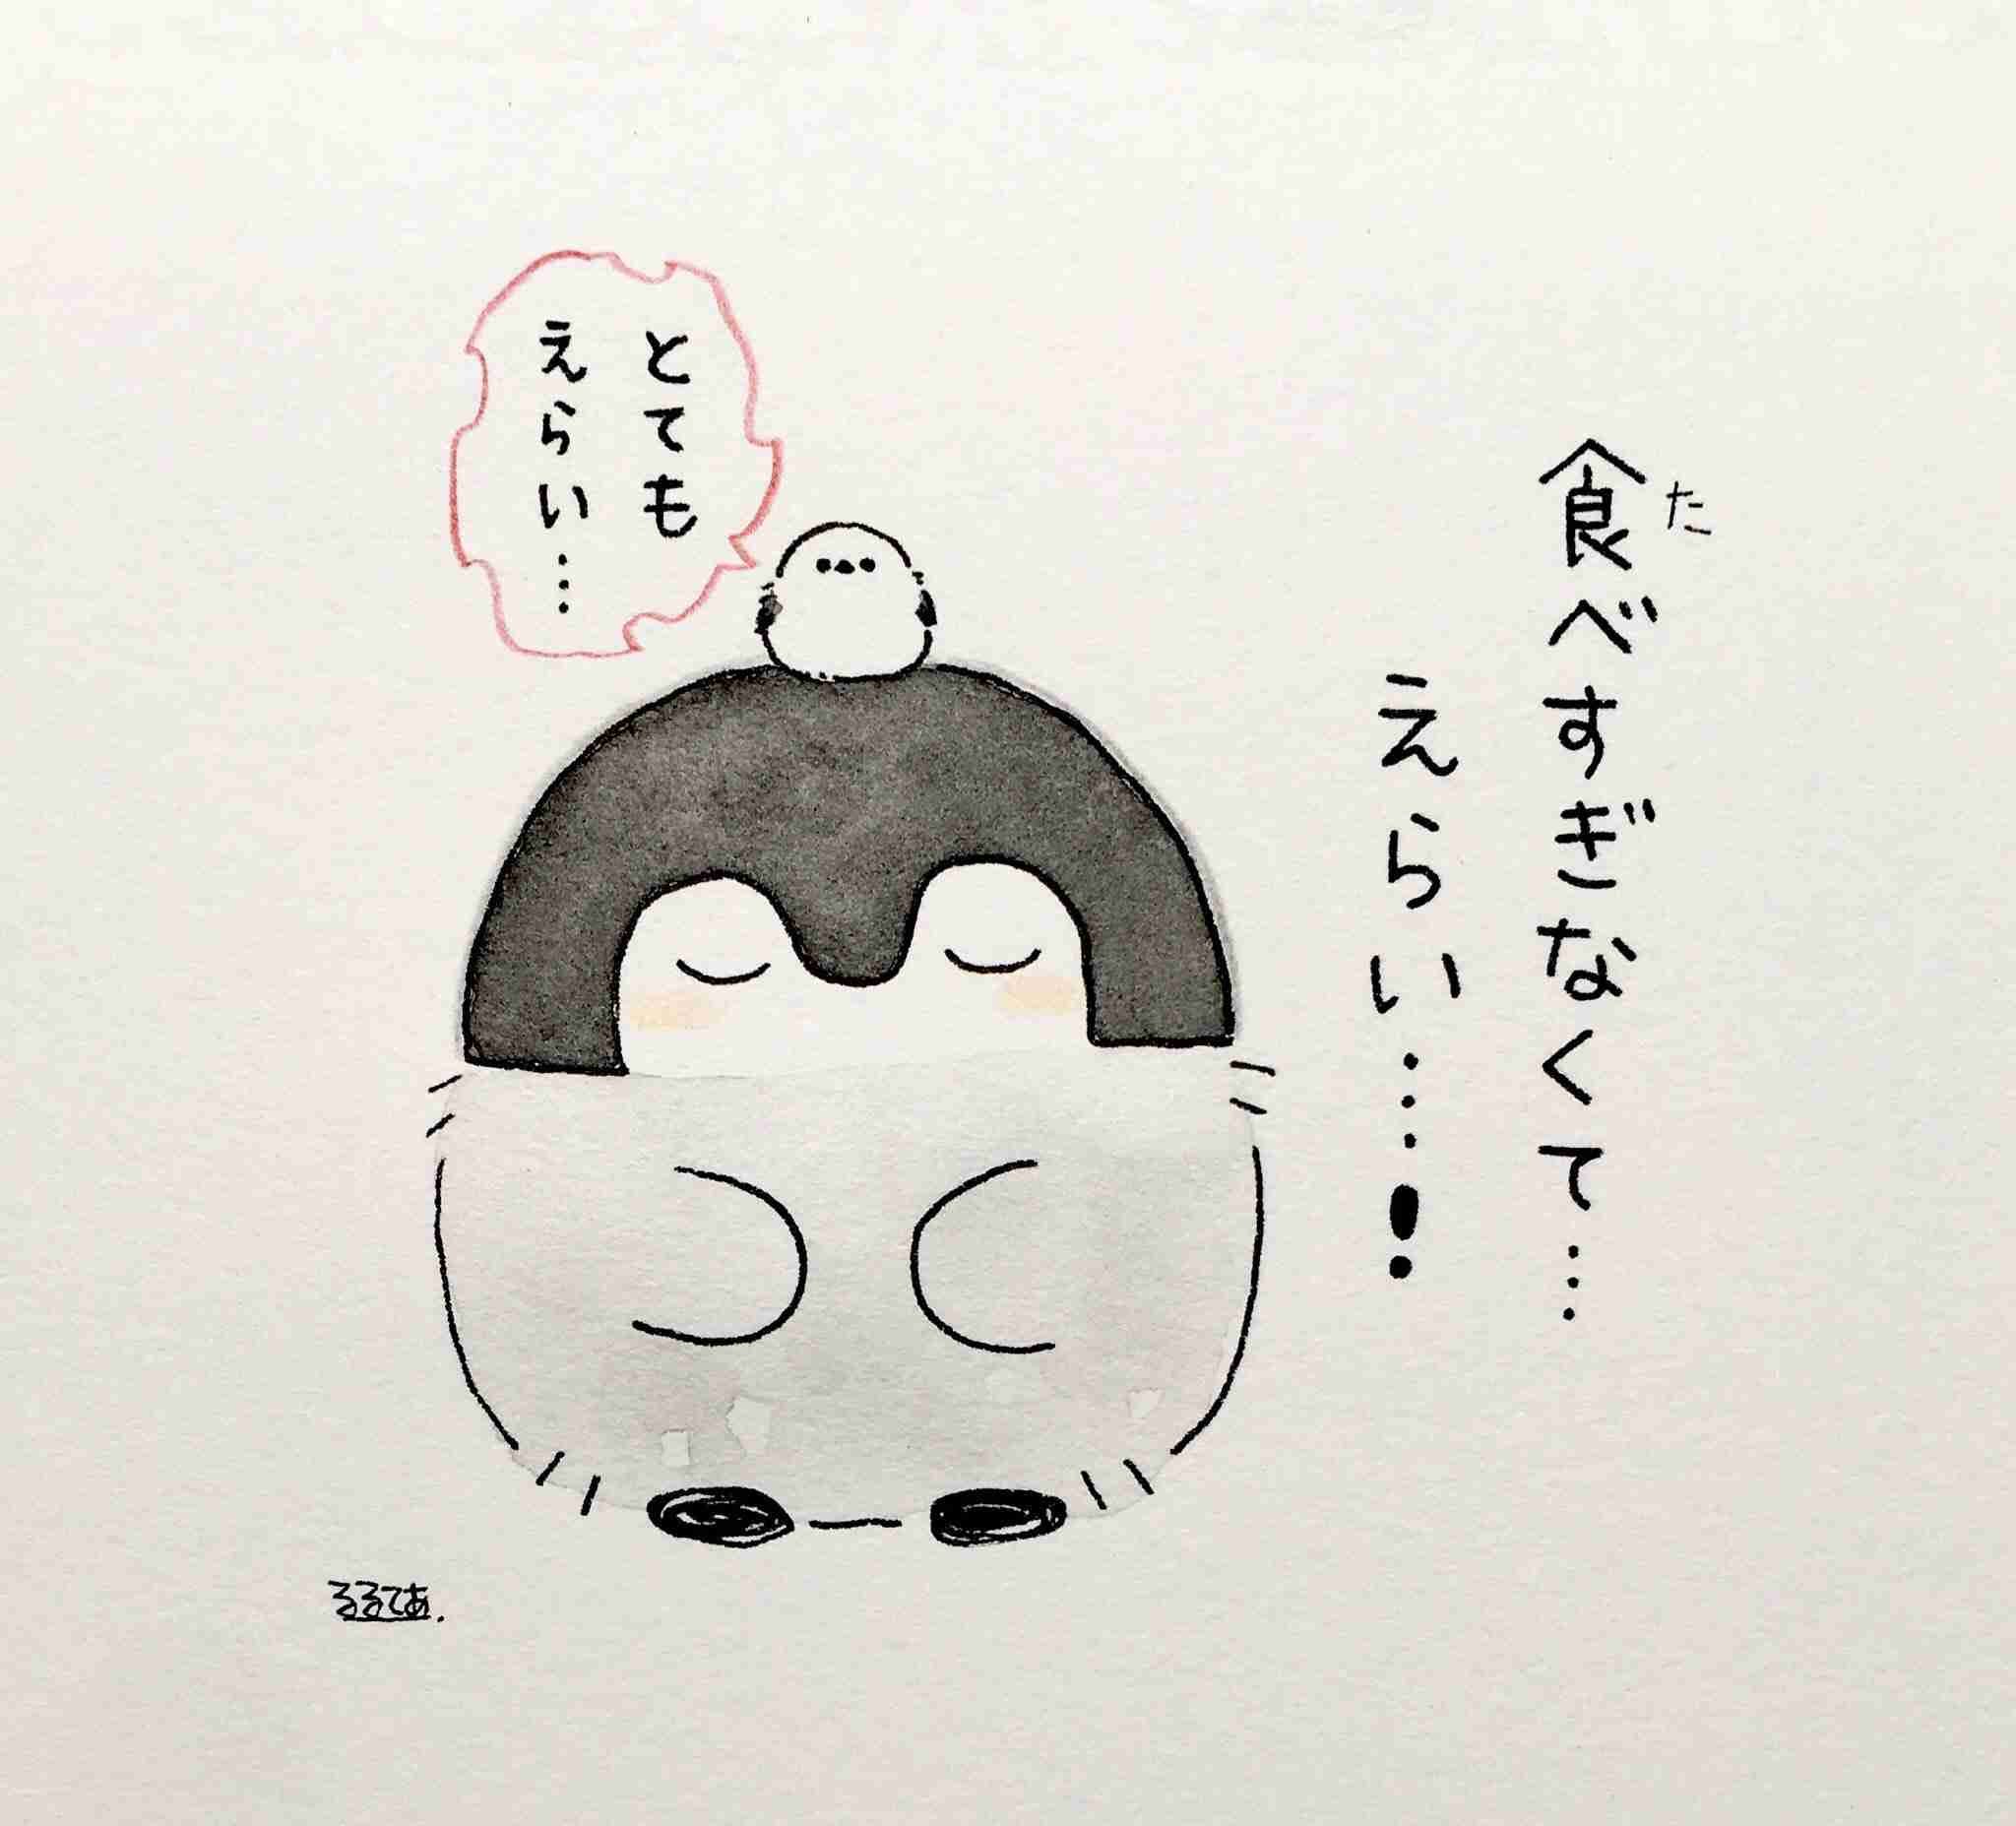 食べすぎなくて…
た
えらい…!
とても
えらい…
るるてあ.